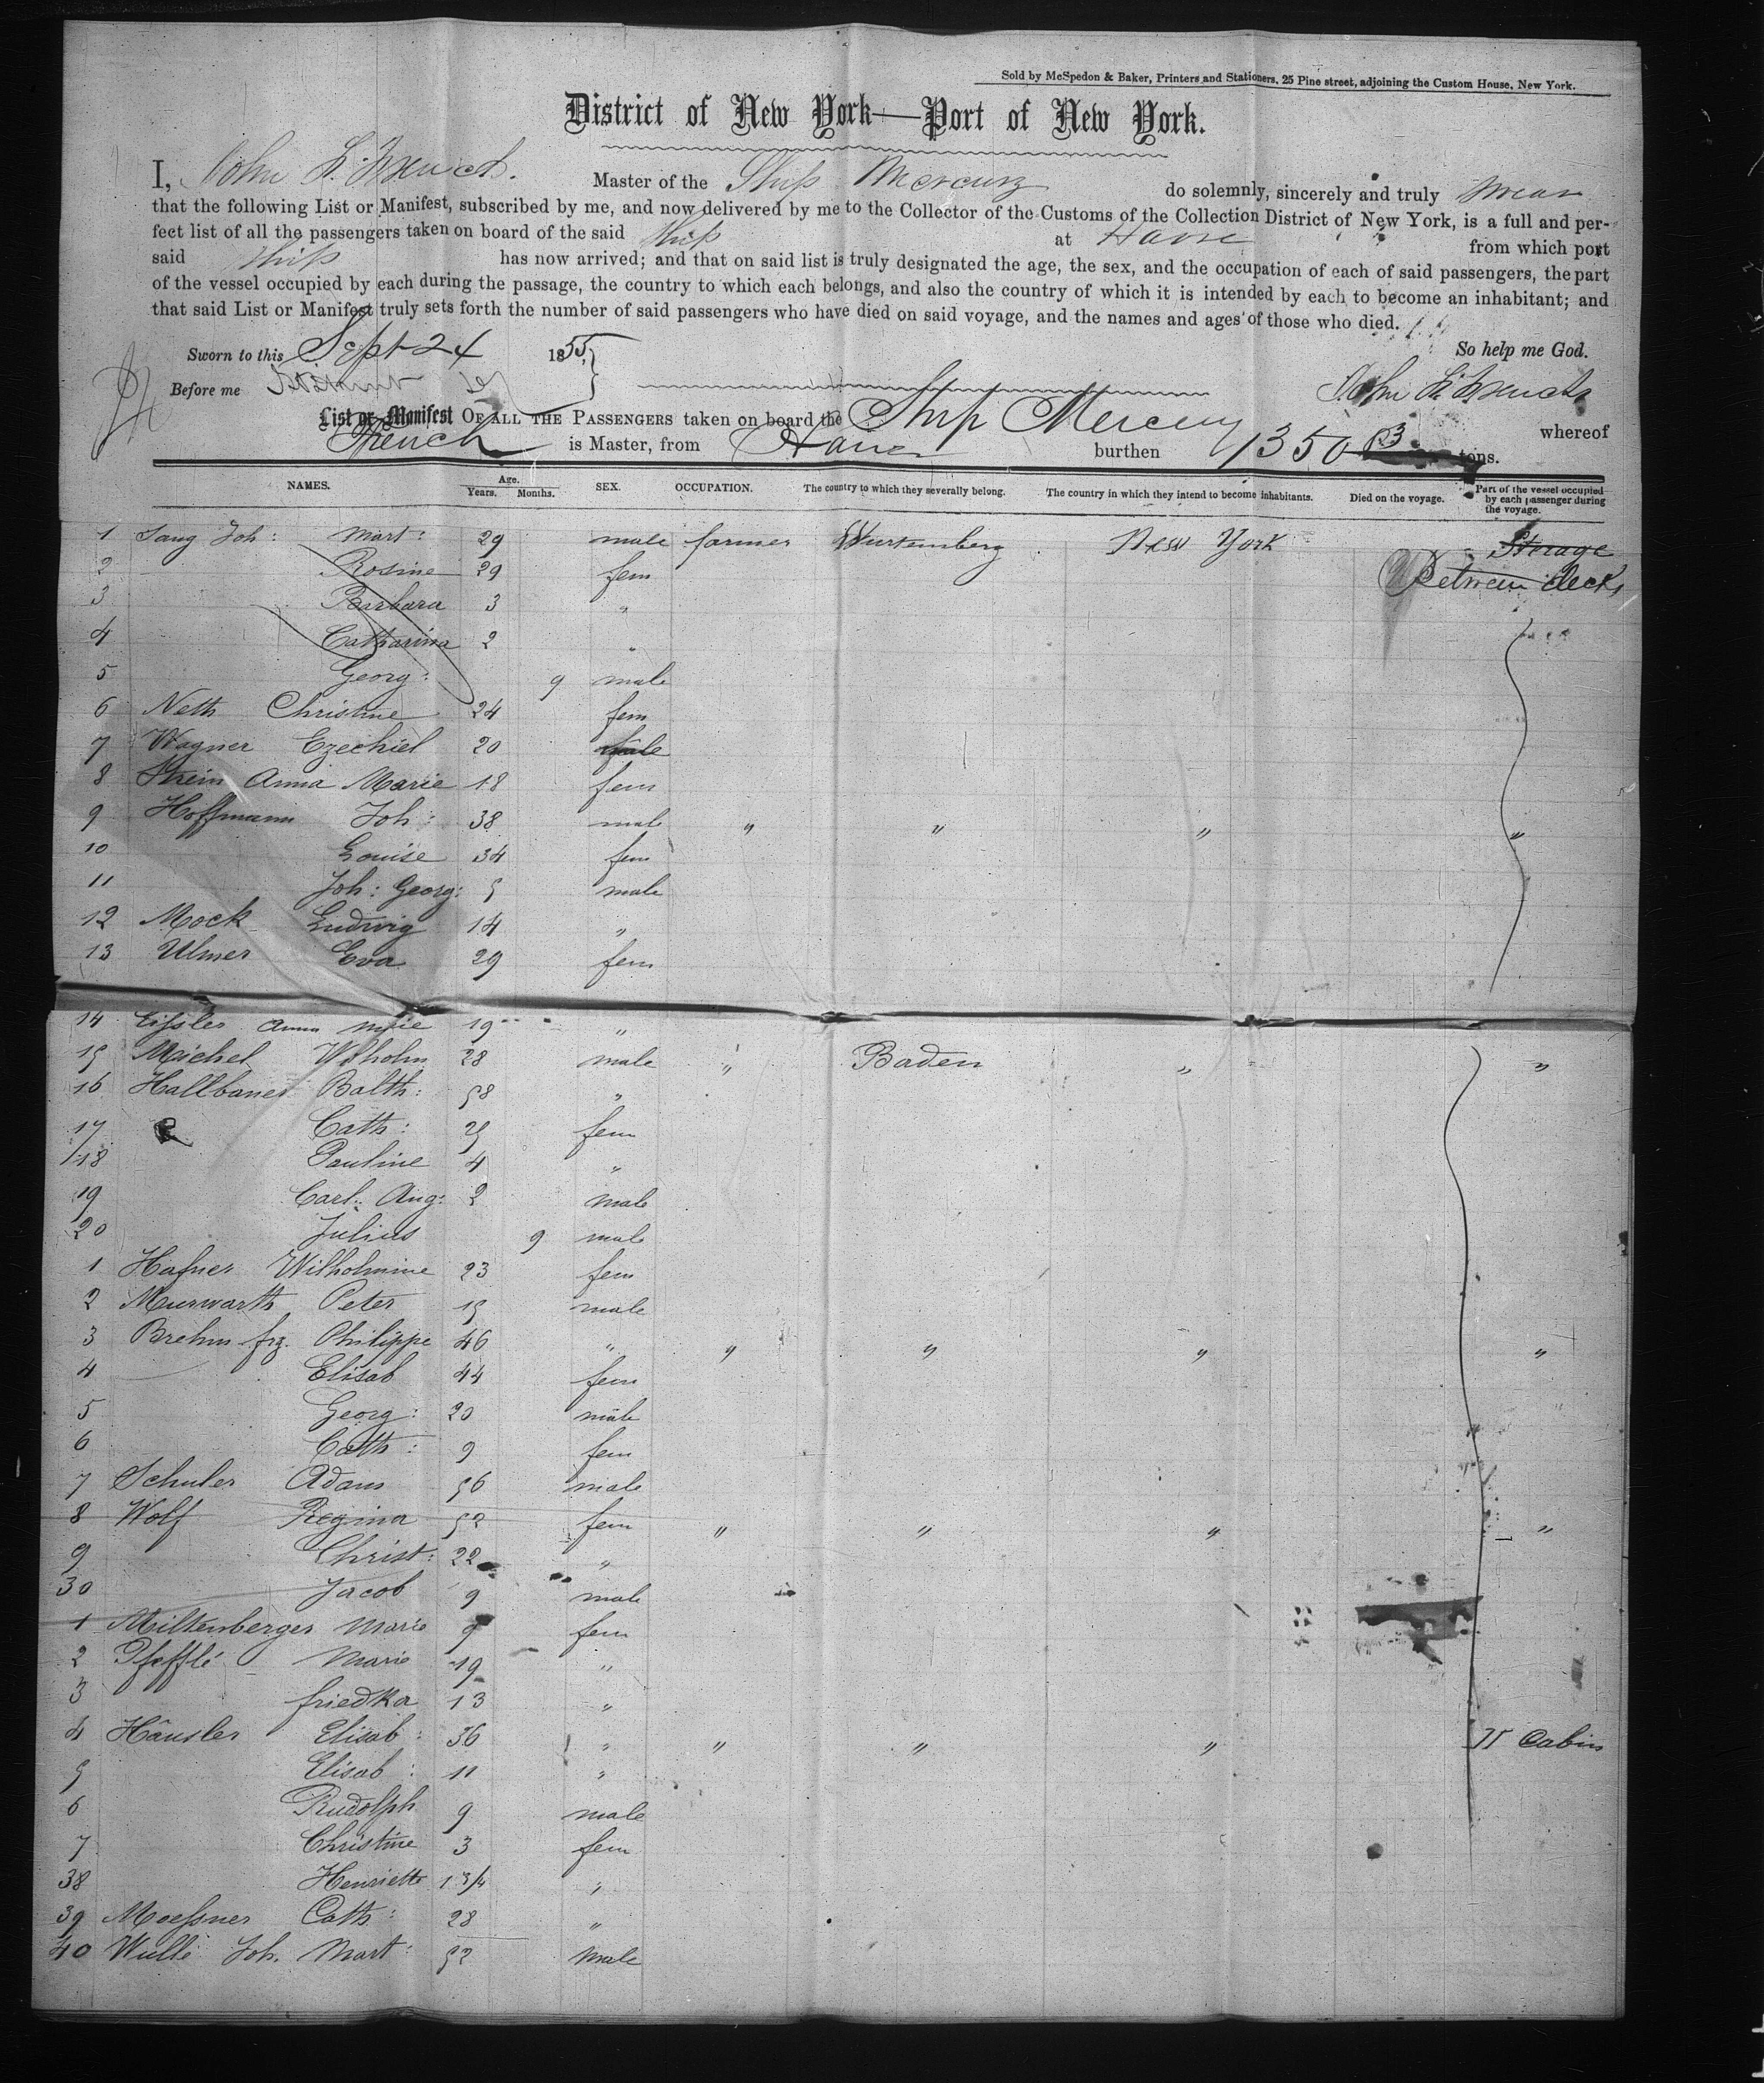 Sold by McSpedon & Baker, Printers and Stationers, 25 Pine street, adjoining the Custom House, New York.
District of New York—Port of New York.
I, John L. French. Master of the Ship Mercury do solemnly, sincerely and truly swear
that the following List or Manifest, subscribed by me, and now delivered by me to the Collector of the Customs of the Collection District of New York, is a full and per-
feet list of all the passengers taken on board of the said Ship at Havre from which port
said Ship has now arrived; and that on said list is truly designated the age, the sex, and the occupation of each of said passengers, the part
of the vessel occupied by each during the passage, the country to which each belongs, and also the country of which it is intended by each to become an inhabitant; and
that said List or Manifest truly sets forth the number of said passengers who have died on said voyage, and the names and ages of those who died.
Sworn to this Sept 24 1855, So help me God.
Before me John L. French
List or Manifest OF ALL THE PASSENGERS taken on board the Ship Mercury whereof
French is Master, from Havre burthen 1350 tons.
NAMES. Age. Years. Months. SEX. OCCUPATION. The country to which they severally belong. The country in which they intend to become inhabitants. Died on the voyage. Part of the vessel occupied by each passenger during the voyage.
1 Sang Joh: Mart: 29 male farmer Wurtemberg New York Sterage
2 Rosine 29 fem Between decks
3 Barbara 3 "
4 Catharina 2 "
5 Georg: 9 male
6 Neth Christine 24 fem
7 Wagner Ezechiel 20 male
8 Anna Marie 18 fem
9 Hoffmann Joh: 38 male " " " "
10 Louise 34 fem
11 Joh: Georg: 5 male
12 Mock Ludwig 14 "
13 Ulmer Eva 29 fem
14 Eissler Anna Mrie 19 "
15 Michel Wilhelm 28 male " Baden " "
16 Hallbauer Balth: 58 "
17 Cath: 25 fem
18 Pauline 4 "
19 Carl: Aug: 2 male
20 Julius 9 male
1 Hafner Wilhelmine 23 fem
2 Murwarth Peter 15 male
3 Brehm frz. Philippe 46 " " " " "
4 Elisab 44 fem
5 Georg: 20 male
6 Cath: 9 fem
7 Schuler Adam 56 male
8 Wolf Regina 52 fem " " " "
9 Christ: 22 "
30 Jacob 9 male
1 Miltenberger Marie 9 fem
2 Pfefflé Marie 19 "
3 friedka 13 "
4 Häusler Elisab: 36 " " " " II Cabin
5 Elisab: 11 "
6 Rudolph 9 male
7 Christine 3 fem
38 Henriette 1 3/4 "
39 Moessner Cath: 28 "
40 Wulle Joh. Mart: 52 male